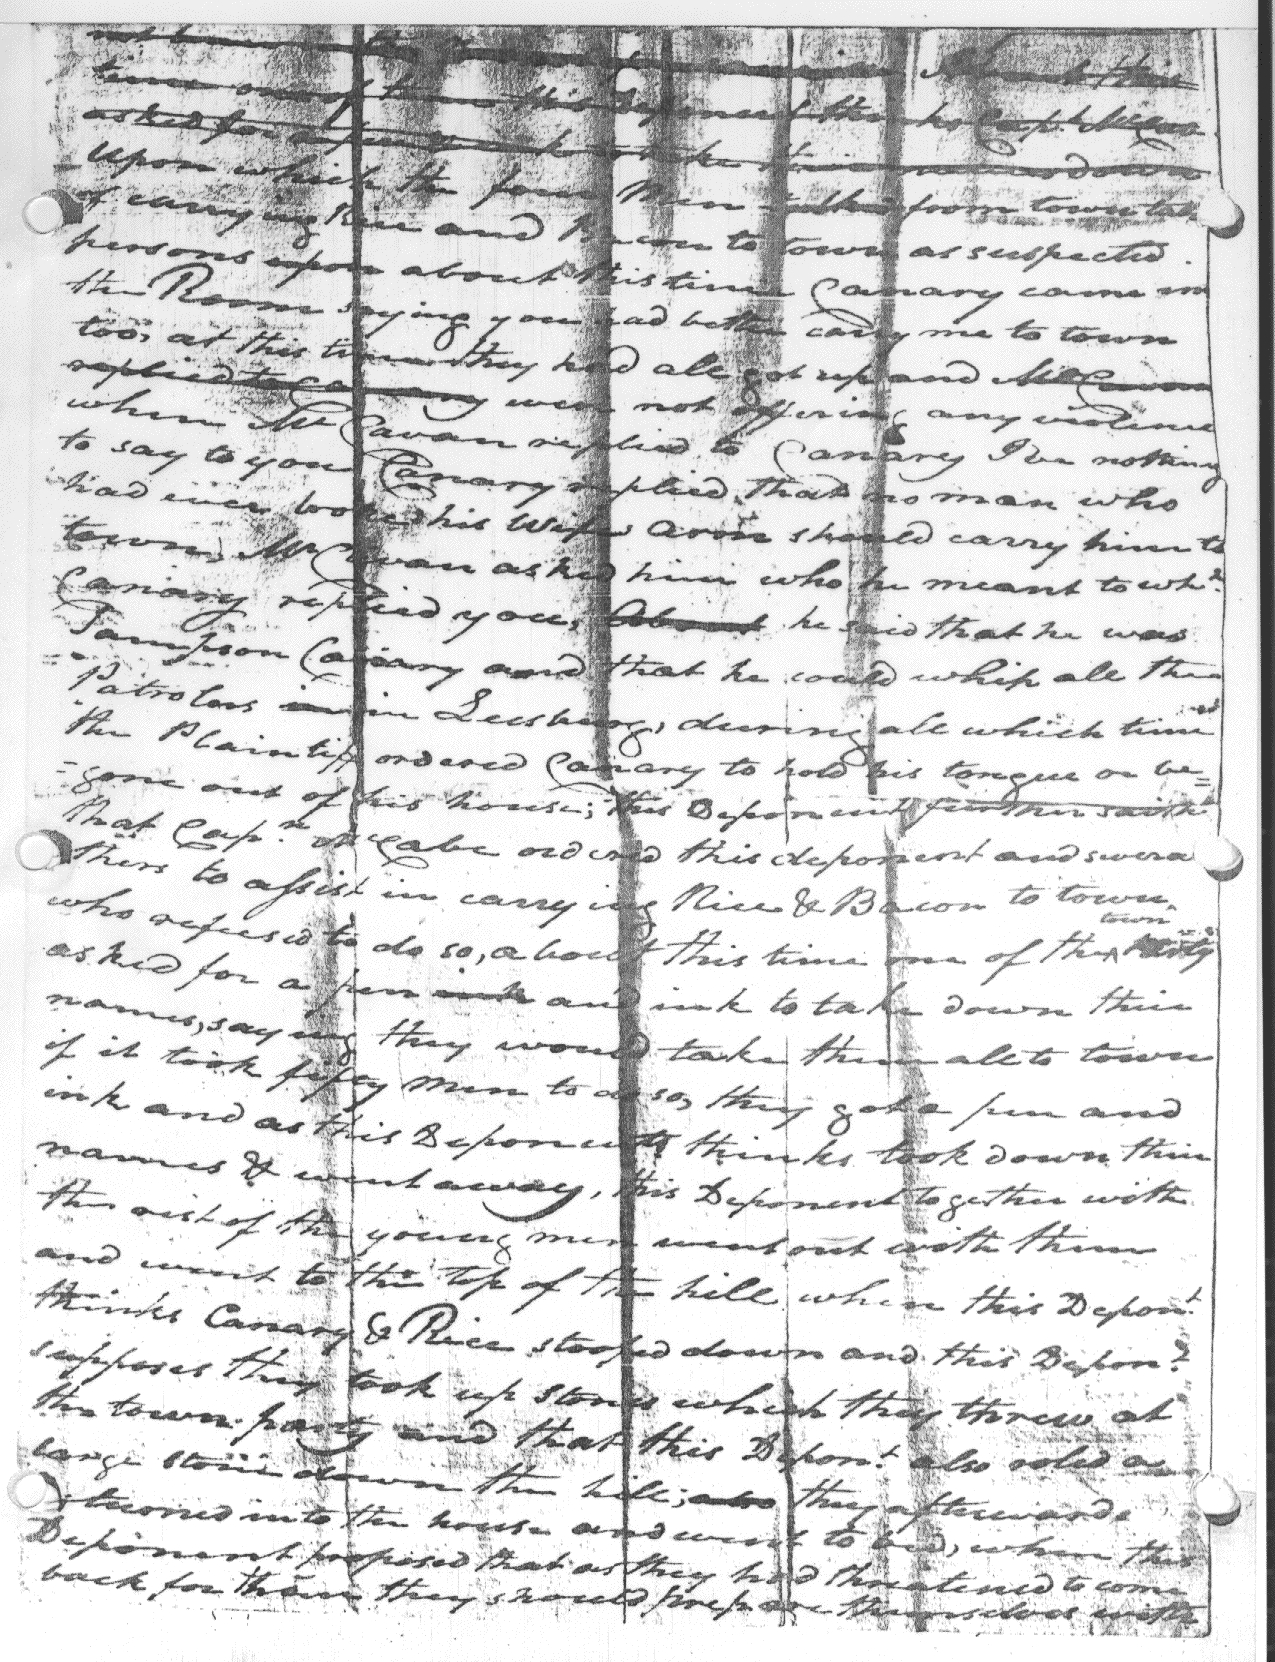 About this
time one of them this Deponent thinks Capt. McCabe
asked for a pen & ink to take their names down
Upon which the four Men from town talk
of carrying Rice and Bacon to town as suspected
persons upon about this time Canary came in
the Room saying you had better carry me to town
too, at this time they had all got up and McCavan
replied to Canary were not offering any violence
when Mr Cavan replied to Canary I've nothing
to say to you Canary replied that no man who
had ever his Wifes arm should carry him to
town, Mr Cavan asked him who he meant to wh.h
Canary replied you, About he said that he was
Sampson Canary and that he could whip all the
Patrolers in in Leesburg, during all which time
the Plaintiff ordered Canary to hold his tongue or be=
=gone out of his house; this Deponent further saith
that Capn. McCabe ordered this deponent and severa
=thers to assist in carrying Rice & Bacon to town,
who refused to do so, about this time one of the town party
asked for a pen ink and ink to take down their
names, saying they would take them all to town
if it took fifty men to do so, they got a pen and
ink and as this Deponent thinks took down their
names & went away, this Deponent together with
the rest of the young men went out with them
and went to the top of the hill when this Depont.
thinks Canary & Rice stooped down and this Depont.
supposes they took up stones which they threw at
the town party and that this Depont. also roled a
large stone down the hill; also they afterwards
returned into the house and went to bed, when this
Deponent proposed that as they had threatened to come
back for them they should prepare themselves with